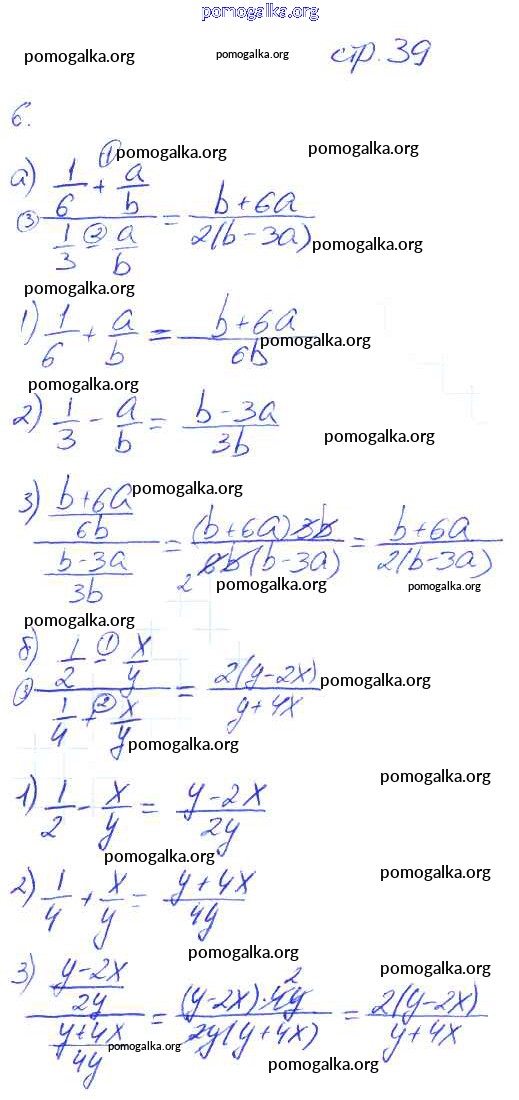 pomogalka.org
pomogalka.org pomogalka.org стр. 39
6.
pomogalka.org pomogalka.org
а) ③ (1/6 +① a/b) / (1/3 -② a/b) = (b+6a) / (2(b-3a))
pomogalka.org
pomogalka.org
1) 1/6 + a/b = (b+6a) / 6b
pomogalka.org
pomogalka.org
2) 1/3 - a/b = (b-3a) / 3b
pomogalka.org
pomogalka.org
3) ((b+6a) / 6b) / ((b-3a) / 3b) = ((b+6a) 3b) / (2 6b(b-3a)) = (b+6a) / (2(b-3a))
pomogalka.org pomogalka.org
pomogalka.org
б) ③ (1/2 -① x/y) / (1/4 +② x/y) = 2(y-2x) / (y+4x)
pomogalka.org
pomogalka.org
pomogalka.org
1) 1/2 - x/y = (y-2x) / 2y
pomogalka.org
pomogalka.org
2) 1/4 + x/y = (y+4x) / 4y
pomogalka.org
pomogalka.org
3) ((y-2x) / 2y) / ((y+4x) / 4y) = ((y-2x)·4y 2) / (2y(y+4x)) = 2(y-2x) / (y+4x)
pomogalka.org
pomogalka.org